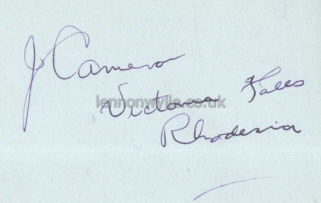 J Cameron
Victoria Falls
Rhodesia
lennonwylie.co.uk